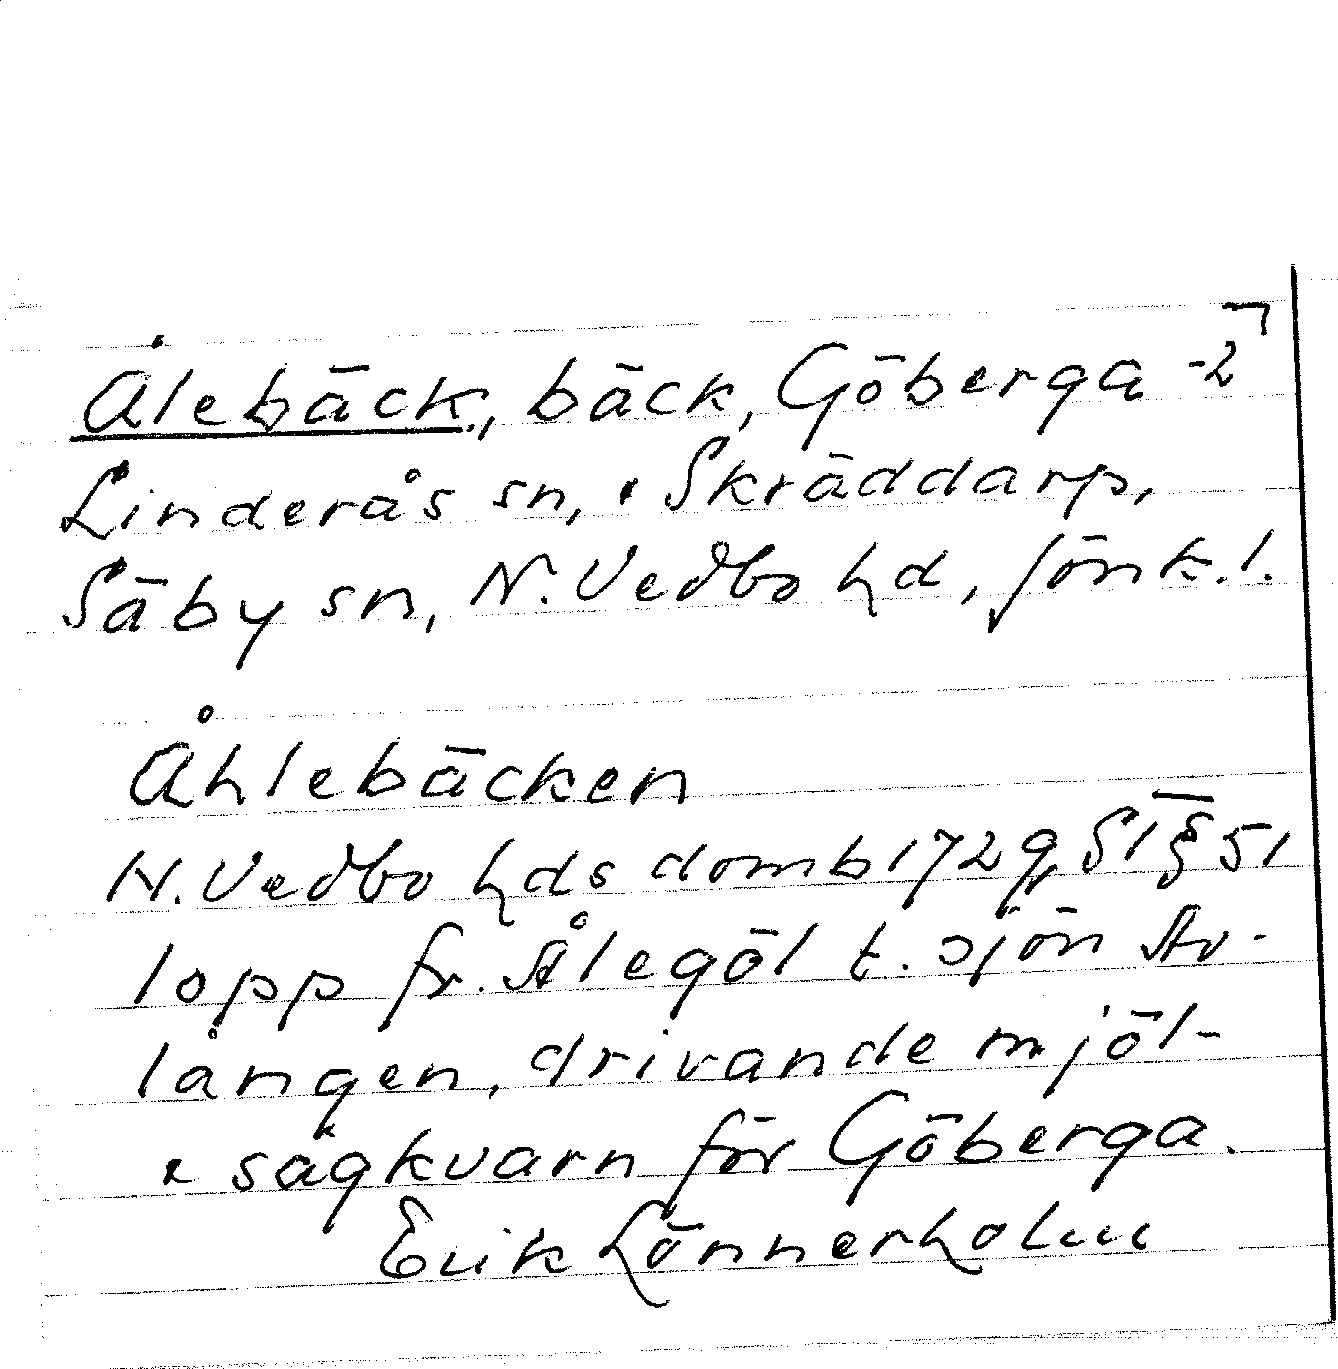 Ålebäck, bäck, Göberga -2
Linderås sn, Skräddarp,
Säby sn, N. Vedbo hd, Jönk. l.
Åhlebäcken
N. Vedbo hds domb 1729, § 51
lopp fr. Ålegöl t. sjön Av-
lången, drivande mjöl-
sågkvarn för Göberga.
Erik Lönnerholm